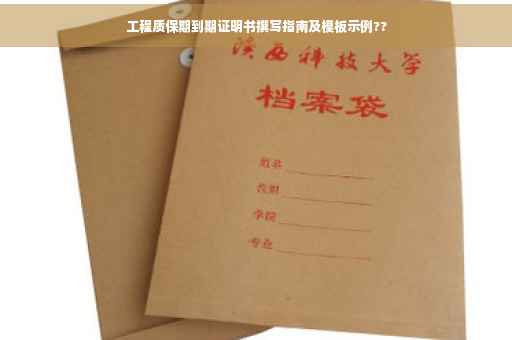 工程质保期到期证明书撰写指南及模板示例??
陕西科技大学
档案袋
姓名
学院
专业